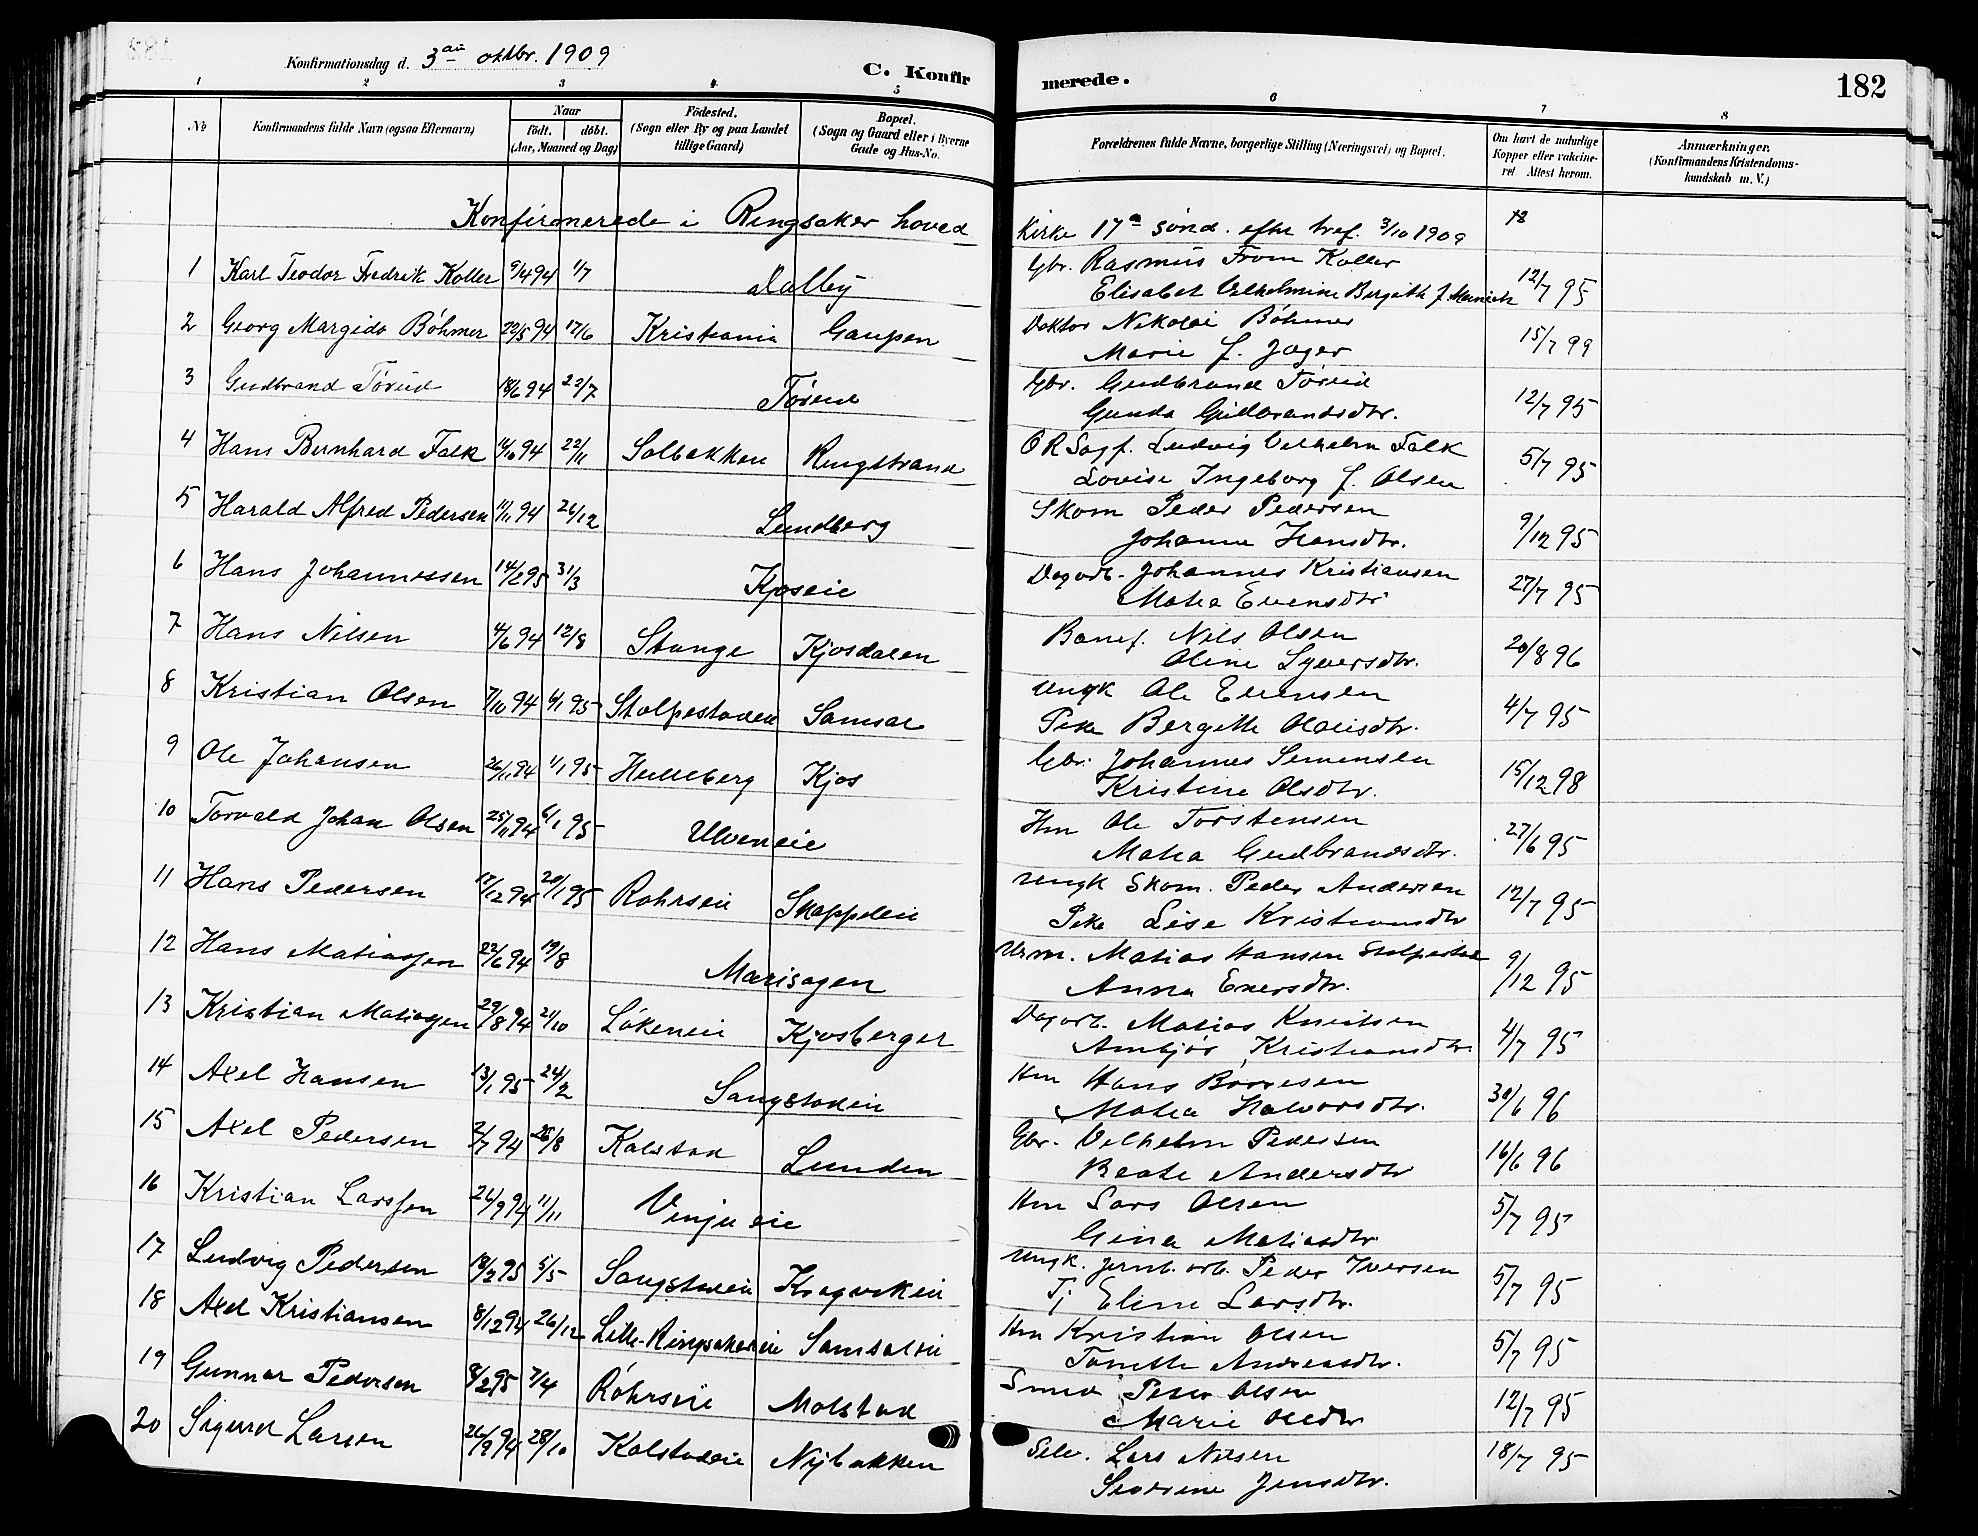 Konfirmationsdag d. 3die oktbr. 1909
C. Konfirmerede.
182
1 2 3 4 5 6 7 8
№
Konfirmandens fulde Navn (ogsaa Efternavn)
Naar
födt. döbt.
(Aar, Maaned og Dag)
Födested.
(Sogn eller By og paa Landet
tillige Gaard)
Bopæl.
(Sogn og Gaard eller i Byerne
Gade og Hus-No.
Forældrenes fulde Navne, borgerlige Stilling (Næringsvei) og Bopæl.
Om havt de naturlige
Kopper eller vakcine-
ret Attest herom.
Anmærkninger.
(Konfirmandens Kristendoms-
kundskab m. V.)
Konfirmerede i Ringsaker hoved Kirke 17de sönd. efter tref. 3/10 1909
1 Karl Teodor Fredrik Koller 9/4 94 1/7 Dalby Gbr. Rasmus From Koller 12/7 95
Elisabet Vilhelmine Bergith f.
2 Georg Margido Böhmer 22/5 94 17/6 Kristiania Gaupen Doktor Nikolai Böhmer 15/7 99
Marie f. Jæger
3 Gudbrand Törud 18/6 94 22/7 Törud Gbr. Gudbrand Törud 12/7 95
Gunda Gudbrandsdtr.
4 Hans Bernhard Falk 16/10 94 22/11 Solbakken Ringstrand O R Sagf. Ludvig Vilhelm Falk 5/7 95
Lovise Ingeborg f. Olsen
5 Harald Alfred Pedersen 11/11 94 26/12 Lundberg Skom Peder Pedersen 9/12 95
Johanne Hansdtr.
6 Hans Johannessen 14/2 95 31/3 Kjoseie Dagarb. Johannes Kristiansen 27/7 95
Matea Evensdtr
7 Hans Nilsen 4/6 94 12/8 Stange Kjosdalen Banef. Nils Olsen 20/8 96
Oline Syversdtr.
8 Kristian Olsen 7/10 94 6/1 95 Stolpestadeie Samsal Ungk Ole Evensen 4/7 95
Pike Bergitte Olausdtr.
9 Ole Johansen 26/11 94 1/1 95 Helleberg Kjos Gbr. Johannes Simensen 15/12 98
Kristine Olsdtr.
10 Torvald Johan Olsen 25/11 94 6/1 95 Ulveneie Hm Ole Torstensen 27/6 95
Matea Gudbrandsdtr.
11 Hans Pedersen 17/12 94 20/1 95 Rohrseie Skappeleie Ungk Skom. Peder Andersen 12/7 95
Pike Lise Kristiansdtr
12 Hans Matiassen 22/6 94 19/8 Marisagen Urm. Matias Hansen Stolpestad 9/12 95
Anna Eversdtr.
13 Kristian Matiassen 29/8 94 21/10 Lökeneie Kjosberget Dagarb. Matias Knutsen 4/7 95
Ambjör Kristiansdtr
14 Axel Hansen 13/1 95 24/2 Sangstadeie Hm Hans Börresen 30/6 96
Matea Halvorsdtr.
15 Axel Pedersen 2/7 94 26/8 Kalstad Lunden Gbr. Vilhelm Pedersen 16/6 96
Beate Andersdtr
16 Kristian Larssen 26/9 94 11/11 Vinju eie Hm Lars Olsen 5/7 95
Gina Matiasdtr
17 Ludvig Pedersen 18/2 95 5/5 Sangstadeie Kragvikeie Ungk. jernb. arb. Peder Iversen 5/7 95
Tj Eline Larsdtr.
18 Axel Kristiansen 8/12 94 26/12 Lille-Ringsakereie Samsaleie Hm Kristian Olsen 5/7 95
Tonette Andreasdtr.
19 Gunnar Pedersen 8/2 95 7/4 Röhrseie Molstad Smed Peder Olsen 12/7 95
Marie Olsdtr
20 Sigurd Larsen 26/9 94 28/10 Kalstadeie Nybakken Selv. Lars Nilsen 18/7 95
Severine Jensdtr.